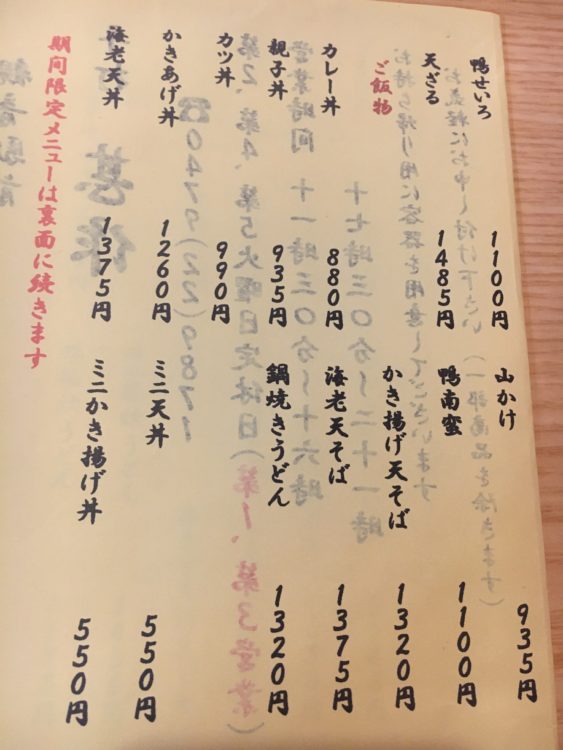 鴨せいろ 1100円
天ざる 1485円
ご飯物
カレー丼 880円
親子丼 935円
カツ丼 990円
かきあげ丼 1260円
海老天丼 1375円
山かけ 935円
鴨南蛮 1100円
かき揚げ天そば 1320円
海老天そば 1375円
鍋焼きうどん 1320円
ミニ天丼 550円
ミニかき揚げ丼 550円
期間限定メニューは裏面に続きます